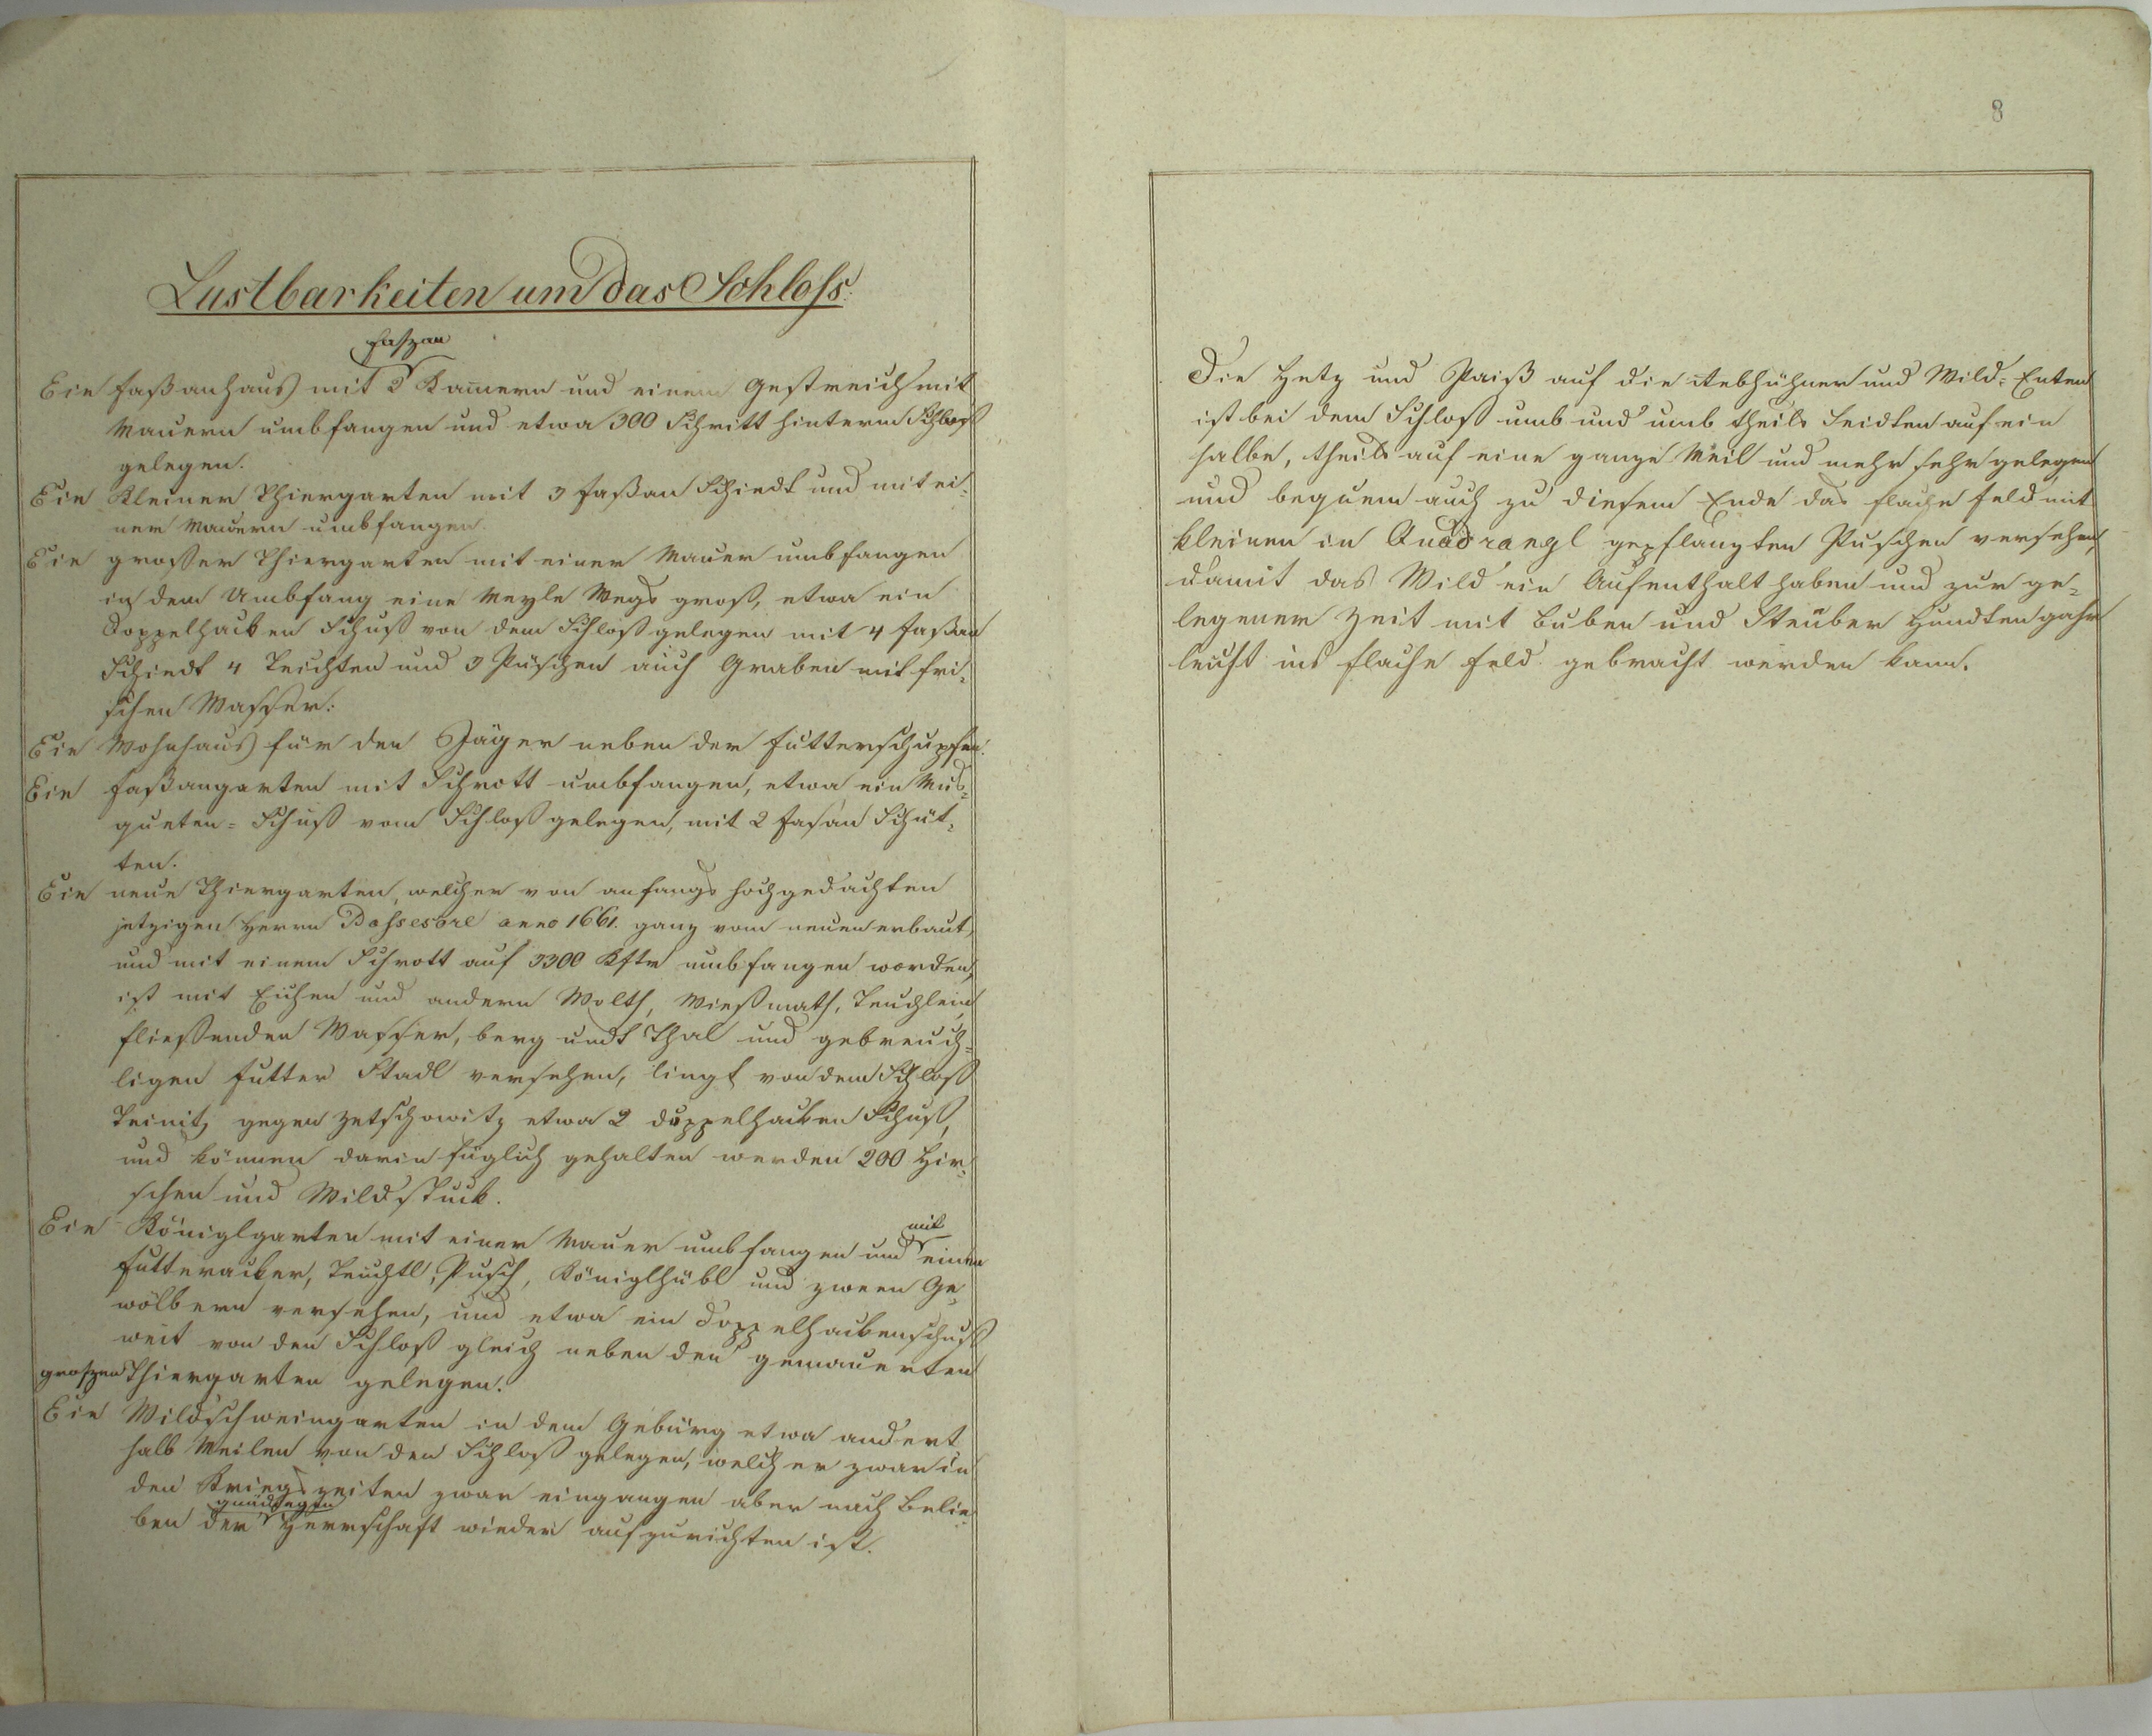 8
Lustbarkeiten um das Schloss.
faszan
Ein Faßanhaus mit 2 Kam̄ern und einem Gestreich mit
Mauern umbfangen und etwa 300 Schritt hinterm Schloß
gelegen.
Ein kleiner Thiergarten mit 3 Faßan Schiedt und mit ei-
ner Mauern umbfangen.
Ein grosser Thiergarten mit einer Mauer umbfangen
in dem Umbfang eine Meyle Wegs groß, etwa ein
Doppelhacken Schuß von dem Schloß gelegen mit 4 Faßan
Schiedt 4 Teichten und 3 Püschen auch Graben mit fri-
schen Wasser:
Ein Wohnhaus für den Jäger neben der Futterschupfen.
Ein Faßangarten mit Schrott umbfangen, etwa ein Mus-
queten-Schuß vom Schloß gelegen, mit 2 Fasan Schüt-
ten.
Ein neue Thiergarten, welcher von anfangs hochgedachten
jetzigen Herrn Possesore anno 1661. ganz vom neuen erbaut,
und mit einem Schrott auf 3300 Kftr umbfangen worden,
ist mit Eichen und andern Wolth, Wießmath, Teuchlein
fließenden Wasser, berg undt Thal und gebreuch-
ligen Futter Stadl versehen, liegt von dem Schloß
Teinitz gegen Zetschowitz etwa 2 doppelhacken Schuß,
und können darin füglich gehalten werden 200 Hir-
schen und Wildstuck.
Ein Königlgarten mit einer Mauer umbfangen und mit einen
Futteracker, Teuchtl, Pusch, Königlhübl und zween Ge-
wölbern versehen, und etwa ein Doppelhackenschuß
weit von den Schloß gleich neben den gemauerten
groszen Thiergarten gelegen.
Ein Wildschweingarten in dem Gebürg etwa andert
halb Meilen von den Schloß gelegen, welcher zwar in
den Kriegszeiten zwar eingangen aber nach Belie-
ben der gnädigen Herrschaft wieder aufzurichten ist.
Die Hetz und Paiß auf die Rebhühner und Wild-Enten
ist bei dem Schloß umb und umb theils Seidten auf ein
halbe, theils auf eine ganze Meil und mehr sehr gelegen
und bequem auch zu diesem Ende das flache Feld mit
kleinen in Quadrangl gepflanzten Puschen versehen,
damit das Wild ein Aufenthalt haben und zur ge-
legener Zeit mit Buben und Steuber Hundten gahr
leicht ins flache Feld gebracht werden kann.